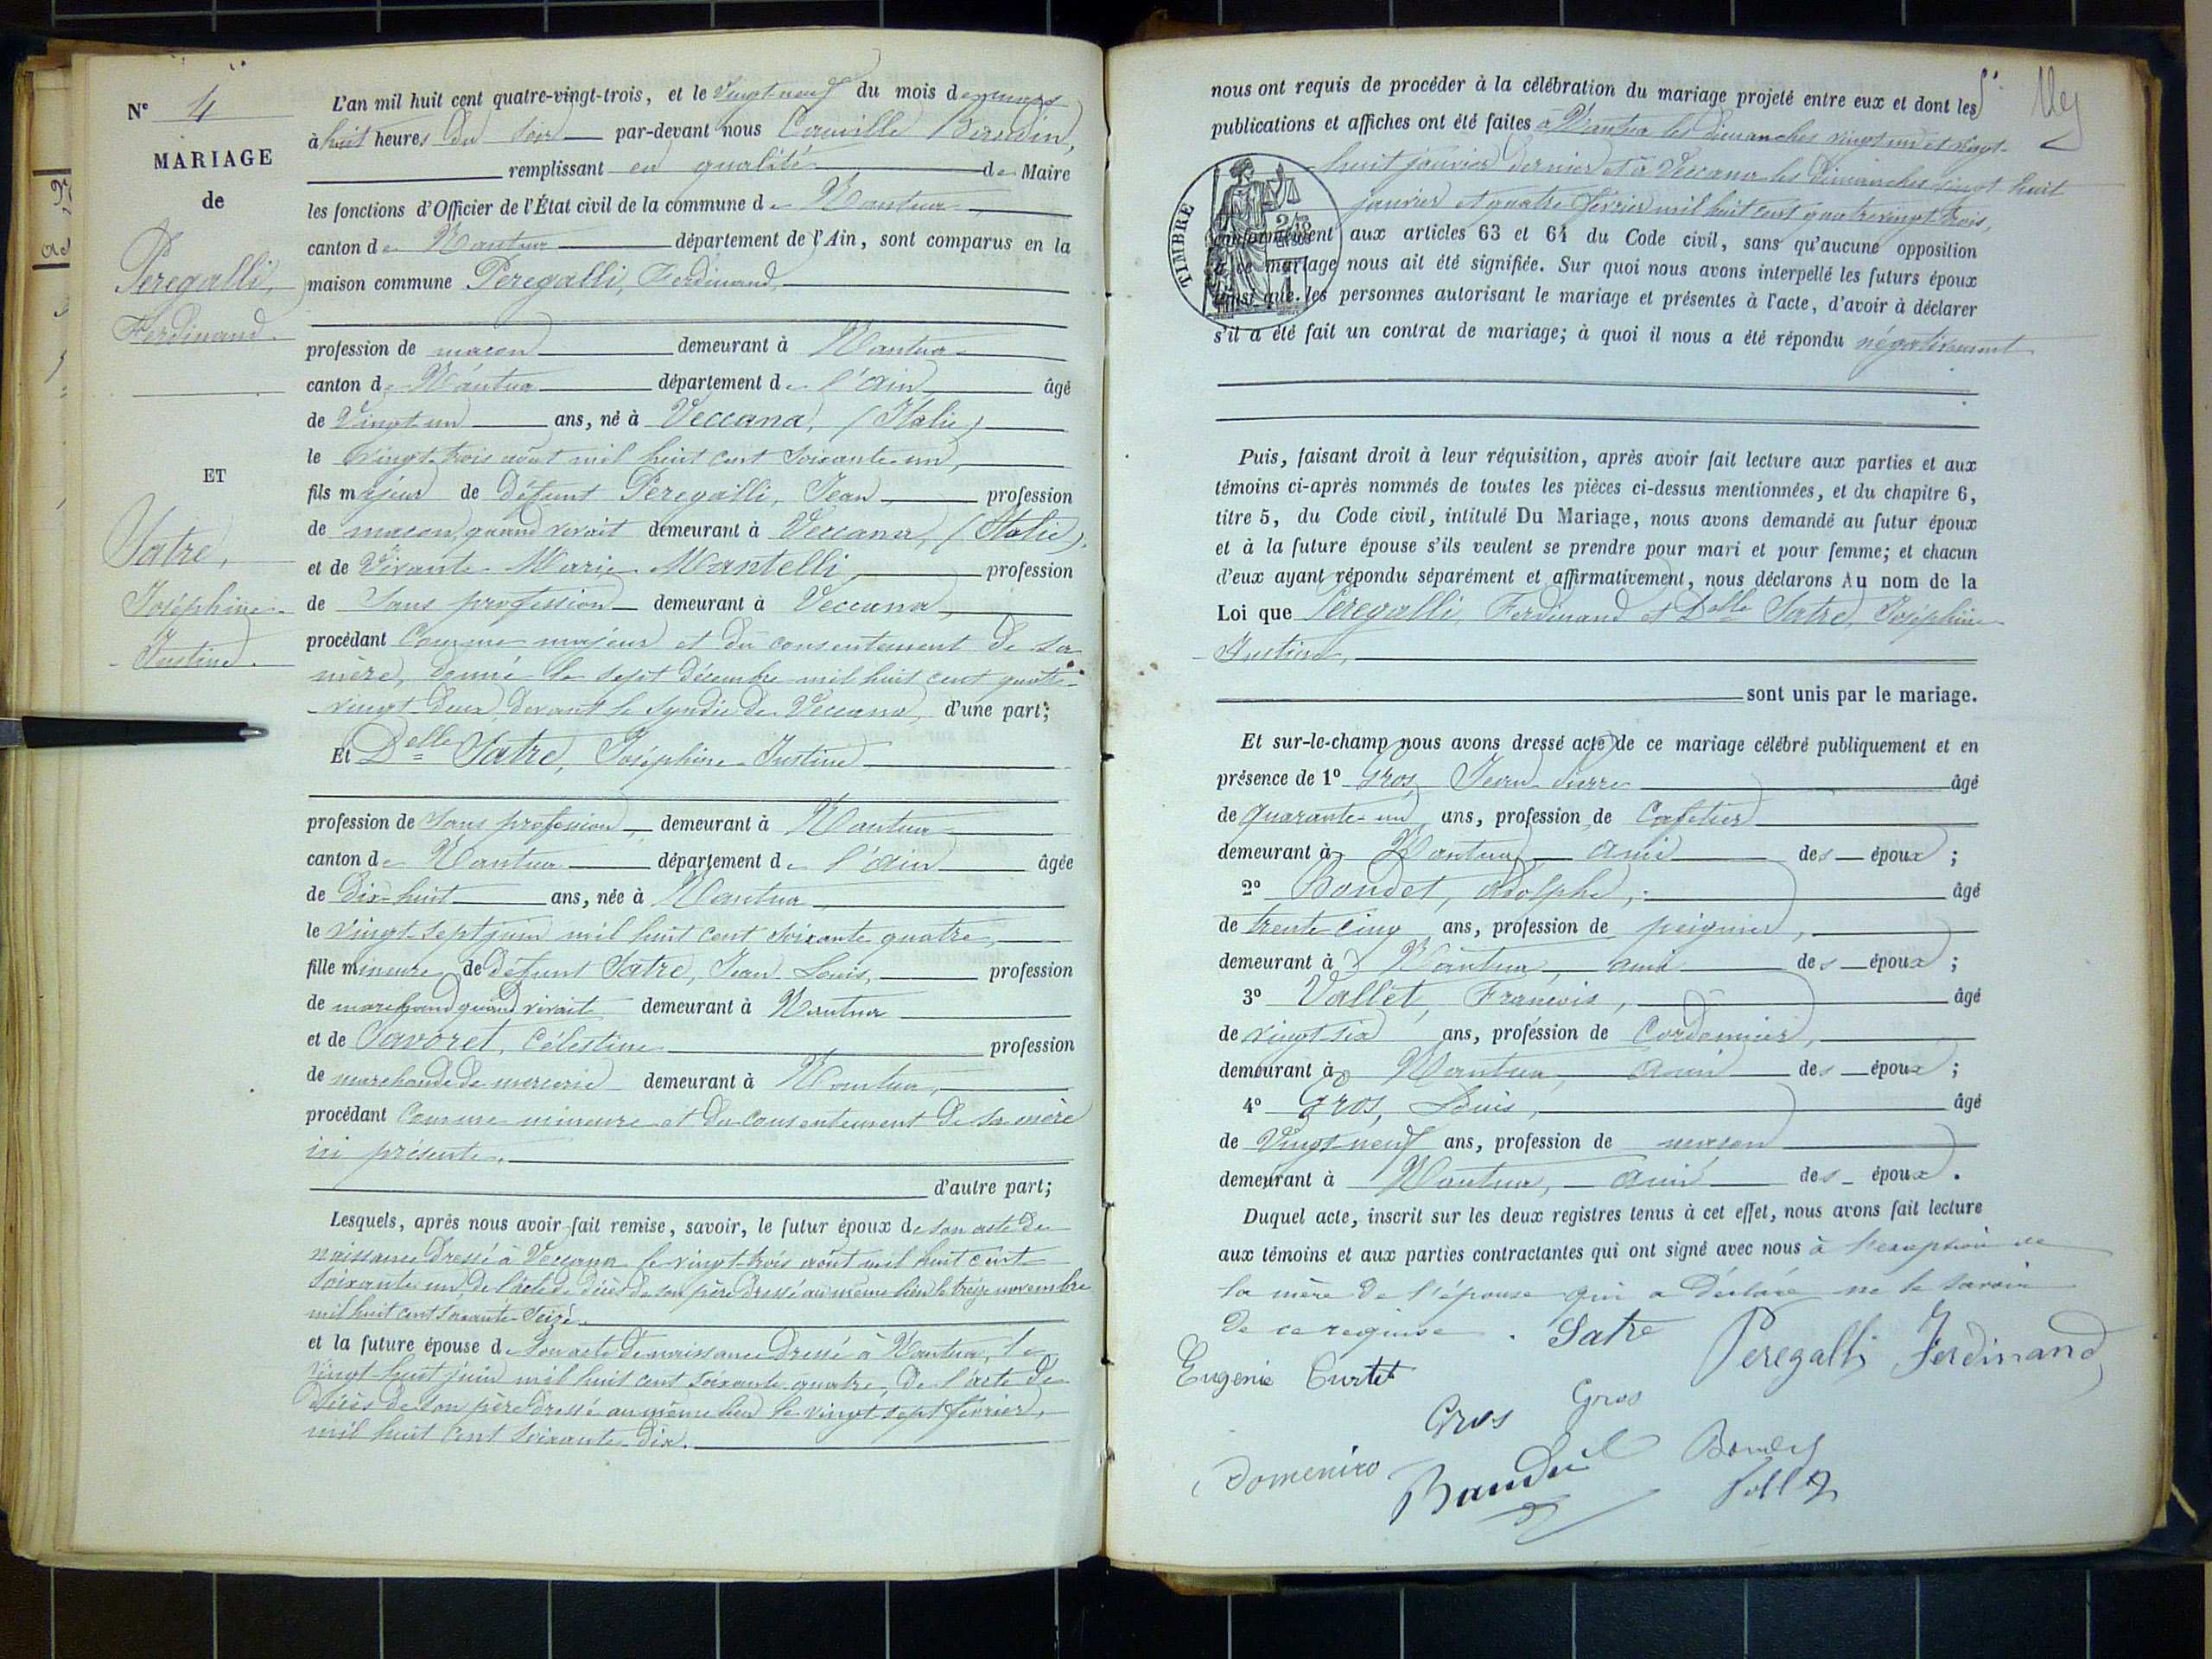 N° 4
MARIAGE
de
Peregalli,
Ferdinand.
ET
Satre,
Joséphine-
Justine.
L'an mil huit cent quatre-vingt-trois, et le vingt-neuf du mois de mars
à huit heures du soir par-devant nous Camille Baudin,
remplissant en qualité de Maire
les fonctions d'Officier de l'État civil de la commune de Nantua,
canton de Nantua département de l'Ain, sont comparus en la
maison commune Peregalli, Ferdinand,
profession de maçon demeurant à Nantua
canton de Nantua département de l'Ain âgé
de vingt-un ans, né à Veccana, (Italie)
le vingt-trois août mil huit cent soixante-un,
fils majeur de défunt Peregalli, Jean, profession
de maçon, quand vivait demeurant à Veccana, (Italie),
et de vivante Marie Mantelli, profession
de sans profession demeurant à Veccana,
procédant comme majeur et du consentement de sa
mère, donné le sept décembre mil huit cent quatre-
vingt-deux, devant le syndic de Veccana, d'une part;
Et Delle Satre, Joséphine-Justine
profession de sans profession, demeurant à Nantua
canton de Nantua département de l'Ain âgée
de dix-huit ans, née à Nantua,
le vingt-sept juin mil huit cent soixante-quatre,
fille mineure de défunt Satre, Jean Louis, profession
de marchand quand vivait demeurant à Nantua
et de Savoret, Célestine profession
de marchande de mercerie demeurant à Nantua,
procédant comme mineure et du consentement de sa mère
ici présente.
d'autre part;
Lesquels, après nous avoir fait remise, savoir, le futur époux de son acte de
naissance dressé à Veccana le vingt-trois août mil huit cent
soixante-un, de l'acte de décès de son père dressé au même lieu le treize novembre
mil huit cent soixante-seize.
et la future épouse de son acte de naissance dressé à Nantua, le
vingt-huit juin mil huit cent soixante-quatre, de l'acte de
décès de son père dressé au même lieu le vingt-sept février,
mil huit cent soixante-dix.
nous ont requis de procéder à la célébration du mariage projeté entre eux et dont les
publications et affiches ont été faites à Nantua les dimanches vingt-un et vingt-
huit janvier dernier et à Veccana les dimanches vingt-huit
janvier et quatre février mil huit cent quatre-vingt-trois,
TIMBRE
conformément aux articles 63 et 64 du Code civil, sans qu'aucune opposition
à ce mariage nous ait été signifiée. Sur quoi nous avons interpellé les futurs époux
ainsi que les personnes autorisant le mariage et présentes à l'acte, d'avoir à déclarer
s'il a été fait un contrat de mariage; à quoi il nous a été répondu négativement
Puis, faisant droit à leur réquisition, après avoir fait lecture aux parties et aux
témoins ci-après nommés de toutes les pièces ci-dessus mentionnées, et du chapitre 6,
titre 5, du Code civil, intitulé Du Mariage, nous avons demandé au futur époux
et à la future épouse s'ils veulent se prendre pour mari et pour femme; et chacun
d'eux ayant répondu séparément et affirmativement, nous déclarons Au nom de la
Loi que Peregalli, Ferdinand et Delle Satre, Joséphine-
Justine,
sont unis par le mariage.
Et sur-le-champ nous avons dressé acte de ce mariage célébré publiquement et en
présence de 1° Gros, Jean-Pierre âgé
de quarante-un ans, profession de Cafetier
demeurant à Nantua, ami des époux;
2° Bondet, Adolphe, âgé
de trente-cinq ans, profession de peignier,
demeurant à Nantua, ami des époux;
3° Vallet, François, âgé
de vingt-six ans, profession de Cordonnier,
demeurant à Nantua, ami des époux;
4° Gros, Louis, âgé
de vingt-neuf ans, profession de maçon
demeurant à Nantua, ami des époux.
Duquel acte, inscrit sur les deux registres tenus à cet effet, nous avons fait lecture
aux témoins et aux parties contractantes qui ont signé avec nous à l'exception de
la mère de l'épouse qui a déclaré ne le savoir
de ce requise. Satre Peregalli Ferdinand
Eugénie Curtet
Gros Gros
Domenico Baudin